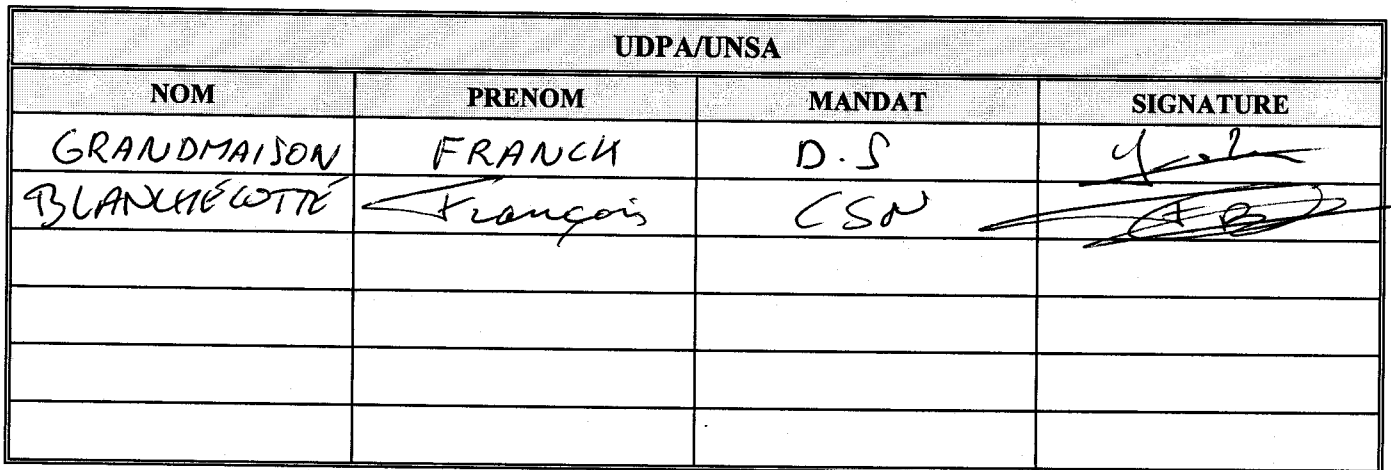 UDPA/UNSA
NOM PRENOM MANDAT SIGNATURE
GRANDMAISON FRANCK D.S
BLANCHÉCOTTÉ François CSN